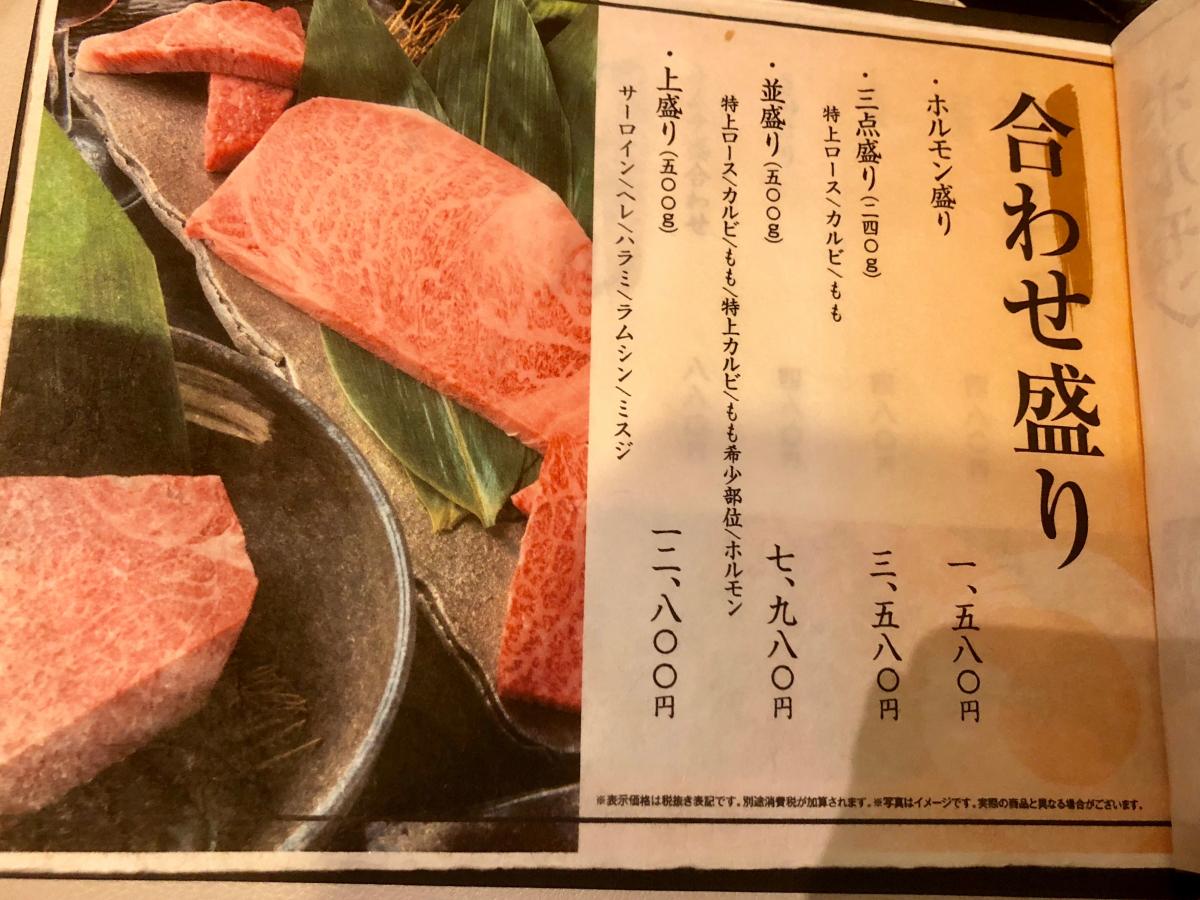 合わせ盛り
・ホルモン盛り 一、五八〇円
・三点盛り(二四〇g) 三、五八〇円
特上ロース/カルビ/もも
・並盛り(五〇〇g) 七、九八〇円
特上ロース/カルビ/もも/特上カルビ/もも希少部位/ホルモン
・上盛り(五〇〇g) 一二、八〇〇円
サーロイン/ヘレ/ハラミ/ラムシン/ミスジ
※表示価格は税抜き表記です。別途消費税が加算されます。※写真はイメージです。実際の商品と異なる場合がございます。